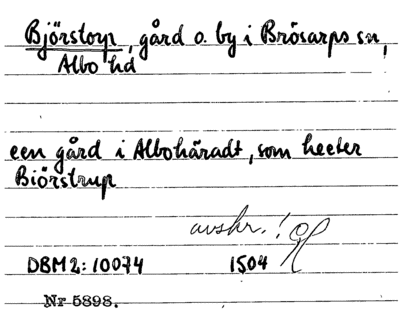 Björstorp, gård o. by i Brösarps sn,
Albo hd
een gård i Albohäradt, som heeter
Biörstrup
avskr.!
DBM 2: 10074 1504
Nr 5898.